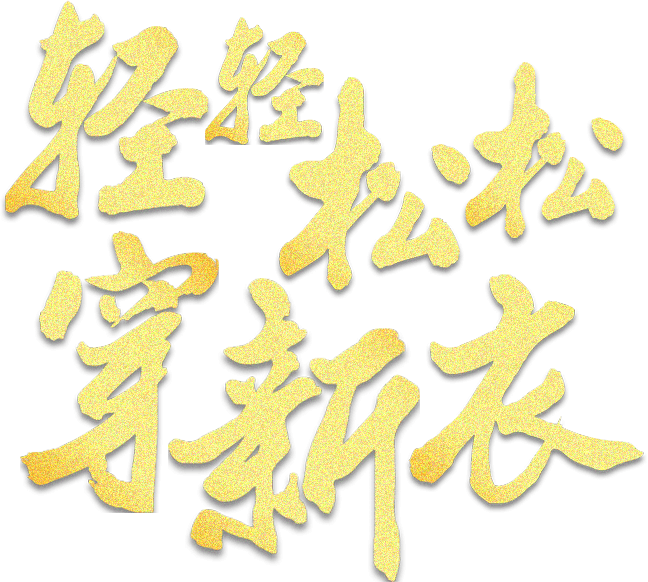 轻轻松松
穿新衣